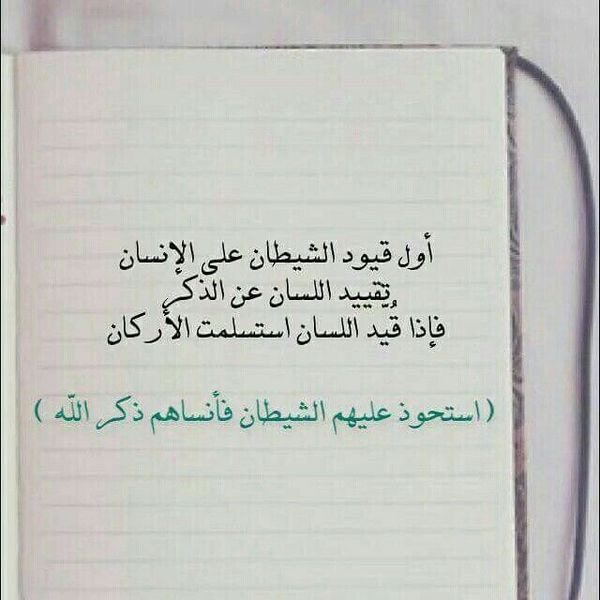 أول قيود الشيطان على الإنسان
تقييد اللسان عن الذكر
فإذا قُيّد اللسان استسلمت الأركان
(استحوذ عليهم الشيطان فأنساهم ذكر اللّه )